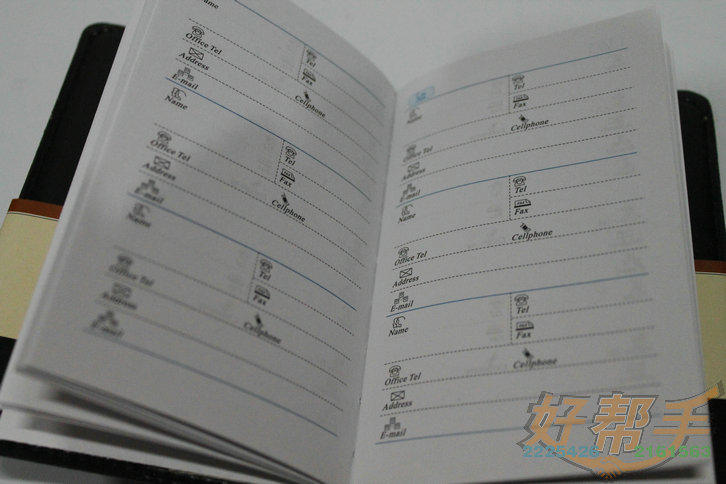 Name
Office Tel
Tel
Address
Fax
E-mail
Cellphone
Name
Office Tel
Tel
Address
Fax
E-mail
Cellphone
Name
Office Tel
Tel
Address
Fax
E-mail
Cellphone
Tel
Name
Fax
Cellphone
Office Tel
Address
E-mail
Tel
Name
Fax
Cellphone
Office Tel
Address
E-mail
Tel
Name
Fax
Cellphone
Office Tel
Address
E-mail
好帮手